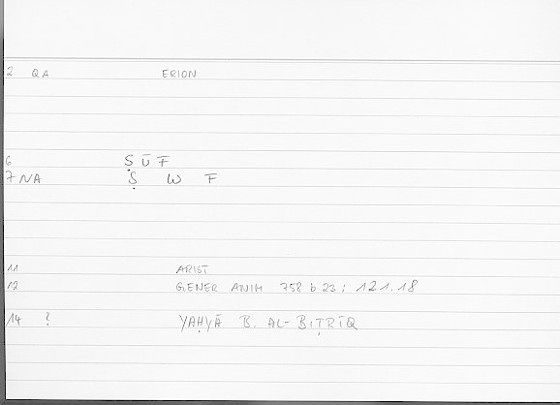 2 QA ERION
6 ṢŪF
7 NA Ṣ W F
11 ARIST
12 GENER ANIM 758 b 23; 121.18
14 ? YAḤYĀ B. AL-BIṬRĪQ